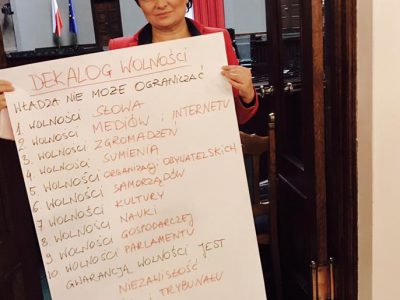 DEKALOG WOLNOŚCI
WŁADZA NIE MOŻE OGRANICZAĆ
1. WOLNOŚCI SŁOWA
2. WOLNOŚCI MEDIÓW i INTERNETU
3. WOLNOŚCI ZGROMADZEŃ
4. WOLNOŚCI SUMIENIA
5. WOLNOŚCI ORGANIZACJI OBYWATELSKICH
6. WOLNOŚCI SAMORZĄDÓW
7. WOLNOŚCI KULTURY
8. WOLNOŚCI NAUKI
9. WOLNOŚCI GOSPODARCZEJ
10. WOLNOŚCI PARLAMENTU
GWARANCJĄ WOLNOŚCI JEST
NIEZAWISŁOŚĆ
TRYBUNAŁU